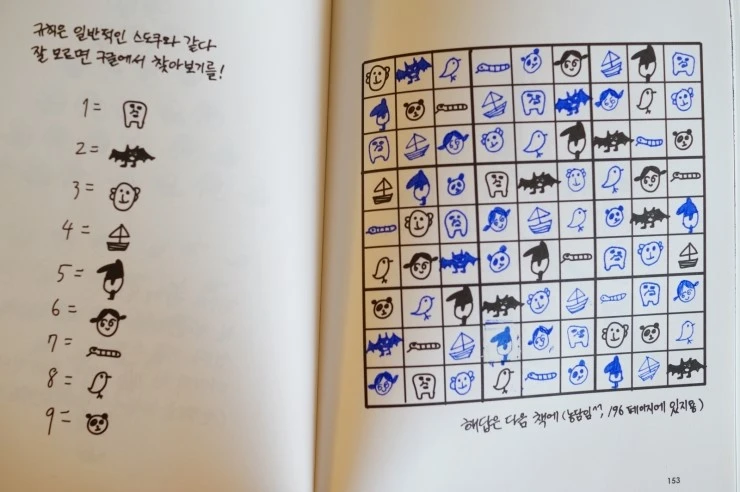 규칙은 일반적인 스도쿠와 같다
잘 모르면 구글에서 찾아보기를!
1 =
2 =
3 =
4 =
5 =
6 =
7 =
8 =
9 =
해답은 다음 책에 (농담임^^, 196 페이지에 있지용)
153